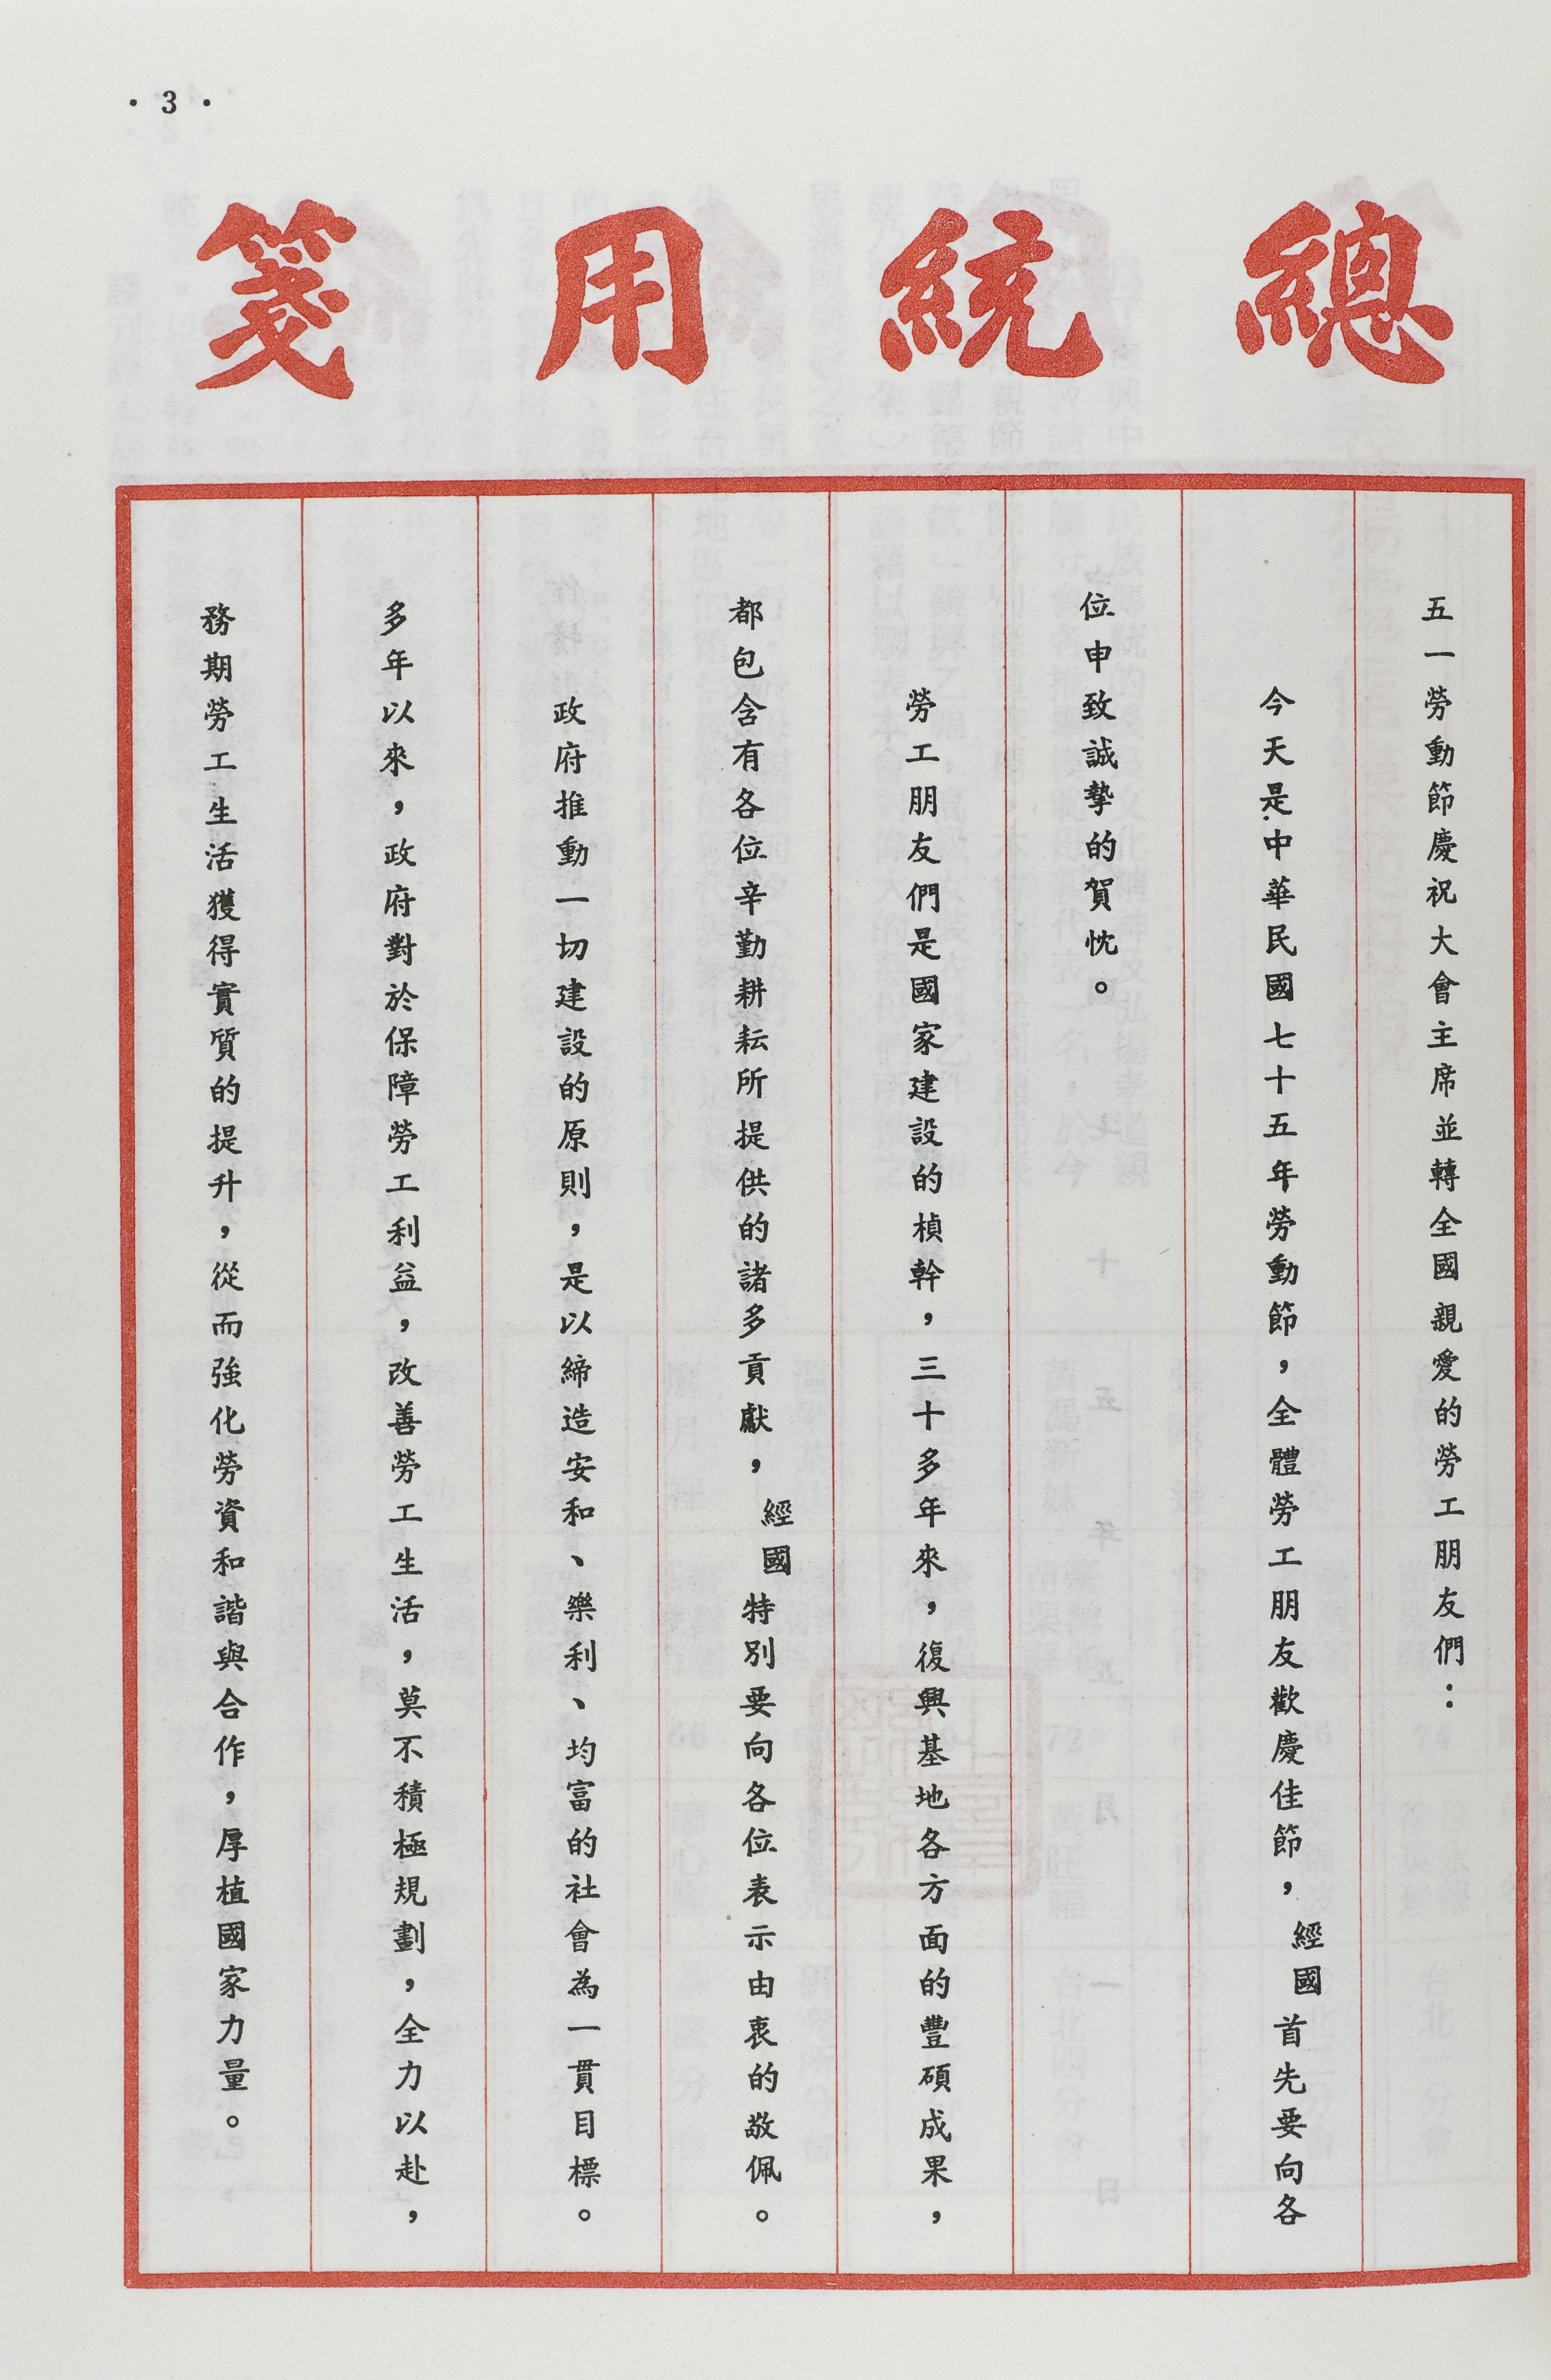 ・3・
總統用箋
五一勞動節慶祝大會主席並轉全國親愛的勞工朋友們：
今天是中華民國七十五年勞動節，全體勞工朋友歡慶佳節，經國首先要向各
位申致誠摯的賀忱。
勞工朋友們是國家建設的楨幹，三十多年來，復興基地各方面的豐碩成果，
都包含有各位辛勤耕耘所提供的諸多貢獻，經國特別要向各位表示由衷的敬佩。
政府推動一切建設的原則，是以締造安和、樂利、均富的社會為一貫目標。
多年以來，政府對於保障勞工利益，改善勞工生活，莫不積極規劃，全力以赴，
務期勞工生活獲得實質的提升，從而強化勞資和諧與合作，厚植國家力量。